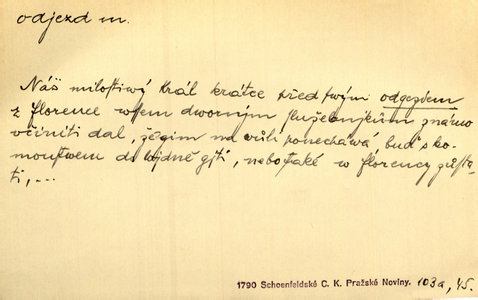 odjezd m.
Náš milostiwý Král krátce před swým odgezdem
z florence wssem dworným služebnjkům známo
včiniti dal, že gim na wůli ponechává, buď s ko-
monstwem do Wjdně gjti, nebo také w florency zůsta-
ti,...
1790 Schoenfeldské C. K. Pražské Noviny. 103a, 45.